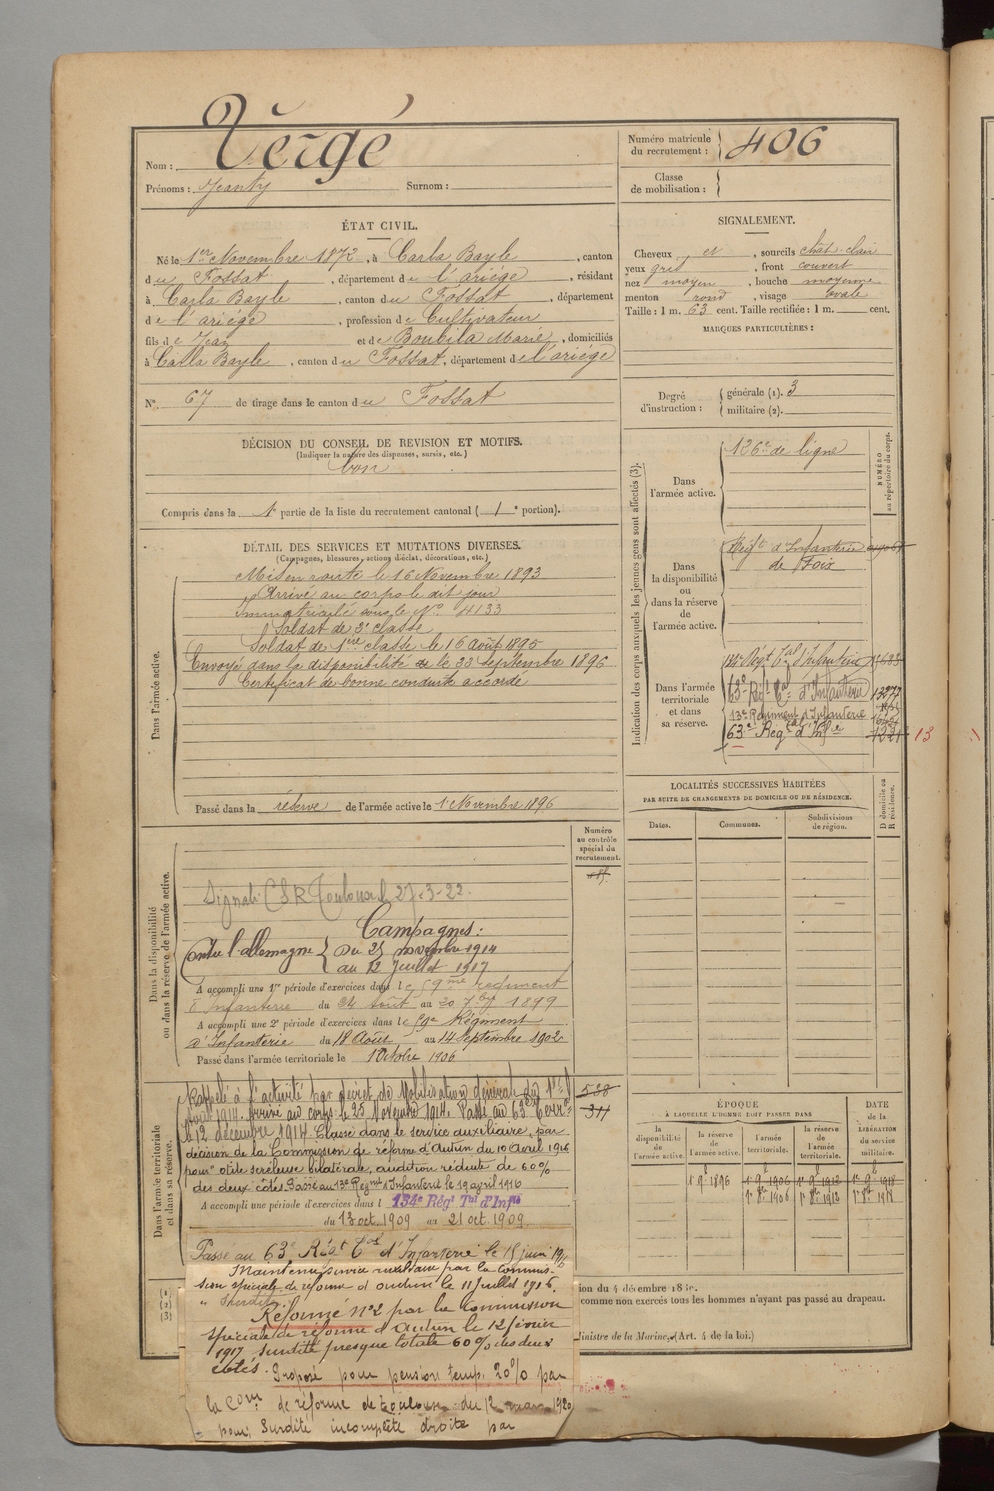 Nom : Vergé
Prénoms : Jeanty Surnom :
Numéro matricule du recrutement : 406
Classe de mobilisation :
ÉTAT CIVIL.
Né le 1er Novembre 1872, à Carla Bayle, canton
du Fossat, département de l'ariége, résidant
à Carla Bayle, canton du Fossat, département
de l'ariége, profession de Cultivateur
fils de Jean et de Boubila Marie, domiciliés
à Carla Bayle, canton du Fossat, département de l'ariége
N° 67 de tirage dans le canton du Fossat
DÉCISION DU CONSEIL DE REVISION ET MOTIFS.
(Indiquer la nature des dispenses, sursis, etc.)
bon
Compris dans la 1e partie de la liste du recrutement cantonal (1e portion).
DÉTAIL DES SERVICES ET MUTATIONS DIVERSES.
(Campagnes, blessures, actions d'éclat, décorations, etc.)
Dans l'armée active.
Mis en route le 16 Novembre 1893
Arrivé au corps le dit jour
Immatriculé sous le N° 4133
Soldat de 2e classe
Soldat de 1ère classe le 16 août 1895
Envoyé dans la disponibilité le 22 Septembre 1896
Certificat de bonne conduite accordé
Passé dans la réserve de l'armée active le 1 Novembre 1896
Numéro au contrôle spécial du recrutement.
Dans la disponibilité ou dans la réserve de l'armée active.
Signalé CSR Toulouse 27-3-22.
Campagnes :
Contre l'allemagne { du 25 novembre 1914
au 12 Juillet 1917
A accompli une 1re période d'exercices dans le 59me régiment
d'Infanterie du 24 août au 20 7bre 1899
A accompli une 2e période d'exercices dans le 59e Régiment
d'Infanterie du 18 Août au 14 Septembre 1902
Passé dans l'armée territoriale le 1 Octobre 1906
Dans l'armée territoriale et dans sa réserve.
Rappelé à l'activité par décret de Mobilisation générale du 1er
Août 1914. Arrivé au corps le 25 Novembre 1914. Passé au 63e Terr.
le 12 décembre 1914. Classé dans le service auxiliaire, par
décision de la Commission de réforme d'Autun du 10 avril 1916
pour otite scléreuse bilatérale, audition réduite de 60%
des deux côtés. Passé au 13e Régmt d'Infanterie le 19 avril 1916
A accompli une période d'exercices dans l 134e Régt Tal d'Inf.
du 13 oct. 1909 au 21 oct. 1909.
538
311
Passé au 63e Régt Tal d'Infanterie le 15 juin 1916
Maintenu service auxiliaire par la Commission
spéciale de réforme d'autun le 11 Juillet 1916.
Réformé n°2 par la Commission
spéciale de réforme d'Autun le 12 février
1917 surdité presque totale 60% des deux
côtés. Proposé pour pension temp. 20% par
la Com. de réforme de Toulouse du 12 mars 1920
pour surdité incomplète droite par
(1)
(2)
(3)
SIGNALEMENT.
Cheveux et, sourcils chât-clair
yeux gris, front couvert
nez moyen, bouche moyenne
menton rond, visage ovale
Taille : 1 m. 63 cent. Taille rectifiée : 1 m. cent.
MARQUES PARTICULIÈRES :
Degré d'instruction : générale (1). 3
militaire (2).
Indication des corps auxquels les jeunes gens sont affectés (3).
NUMÉRO au répertoire du corps.
Dans l'armée active.
126e de ligne
Dans la disponibilité ou dans la réserve de l'armée active.
Régt d'Infanterie
de Foix
Dans l'armée territoriale et dans sa réserve.
134e Régt Tal d'Infanterie
63e Régt Tal d'Infanterie
13e Régiment d'Infanterie
63e Régt Tal d'Infie
13
LOCALITÉS SUCCESSIVES HABITÉES
PAR SUITE DE CHANGEMENTS DE DOMICILE OU DE RÉSIDENCE.
D domicile ou R résidence.
Dates. Communes. Subdivisions de région.
ÉPOQUE
A LAQUELLE L'HOMME DOIT PASSER DANS
DATE de la LIBÉRATION du service militaire.
la disponibilité de l'armée active.
la réserve de l'armée active.
l'armée territoriale.
la réserve de l'armée territoriale.
1 9 1896
1 9 1906
1 9 1912
1 9 1918
1er 8bre 1906
1er 8bre 1912
1er 8bre 1918
ion du 4 décembre 18
comme non exercés tous les hommes n'ayant pas passé au drapeau.
Ministre de la Marine. (Art. 4 de la loi.)